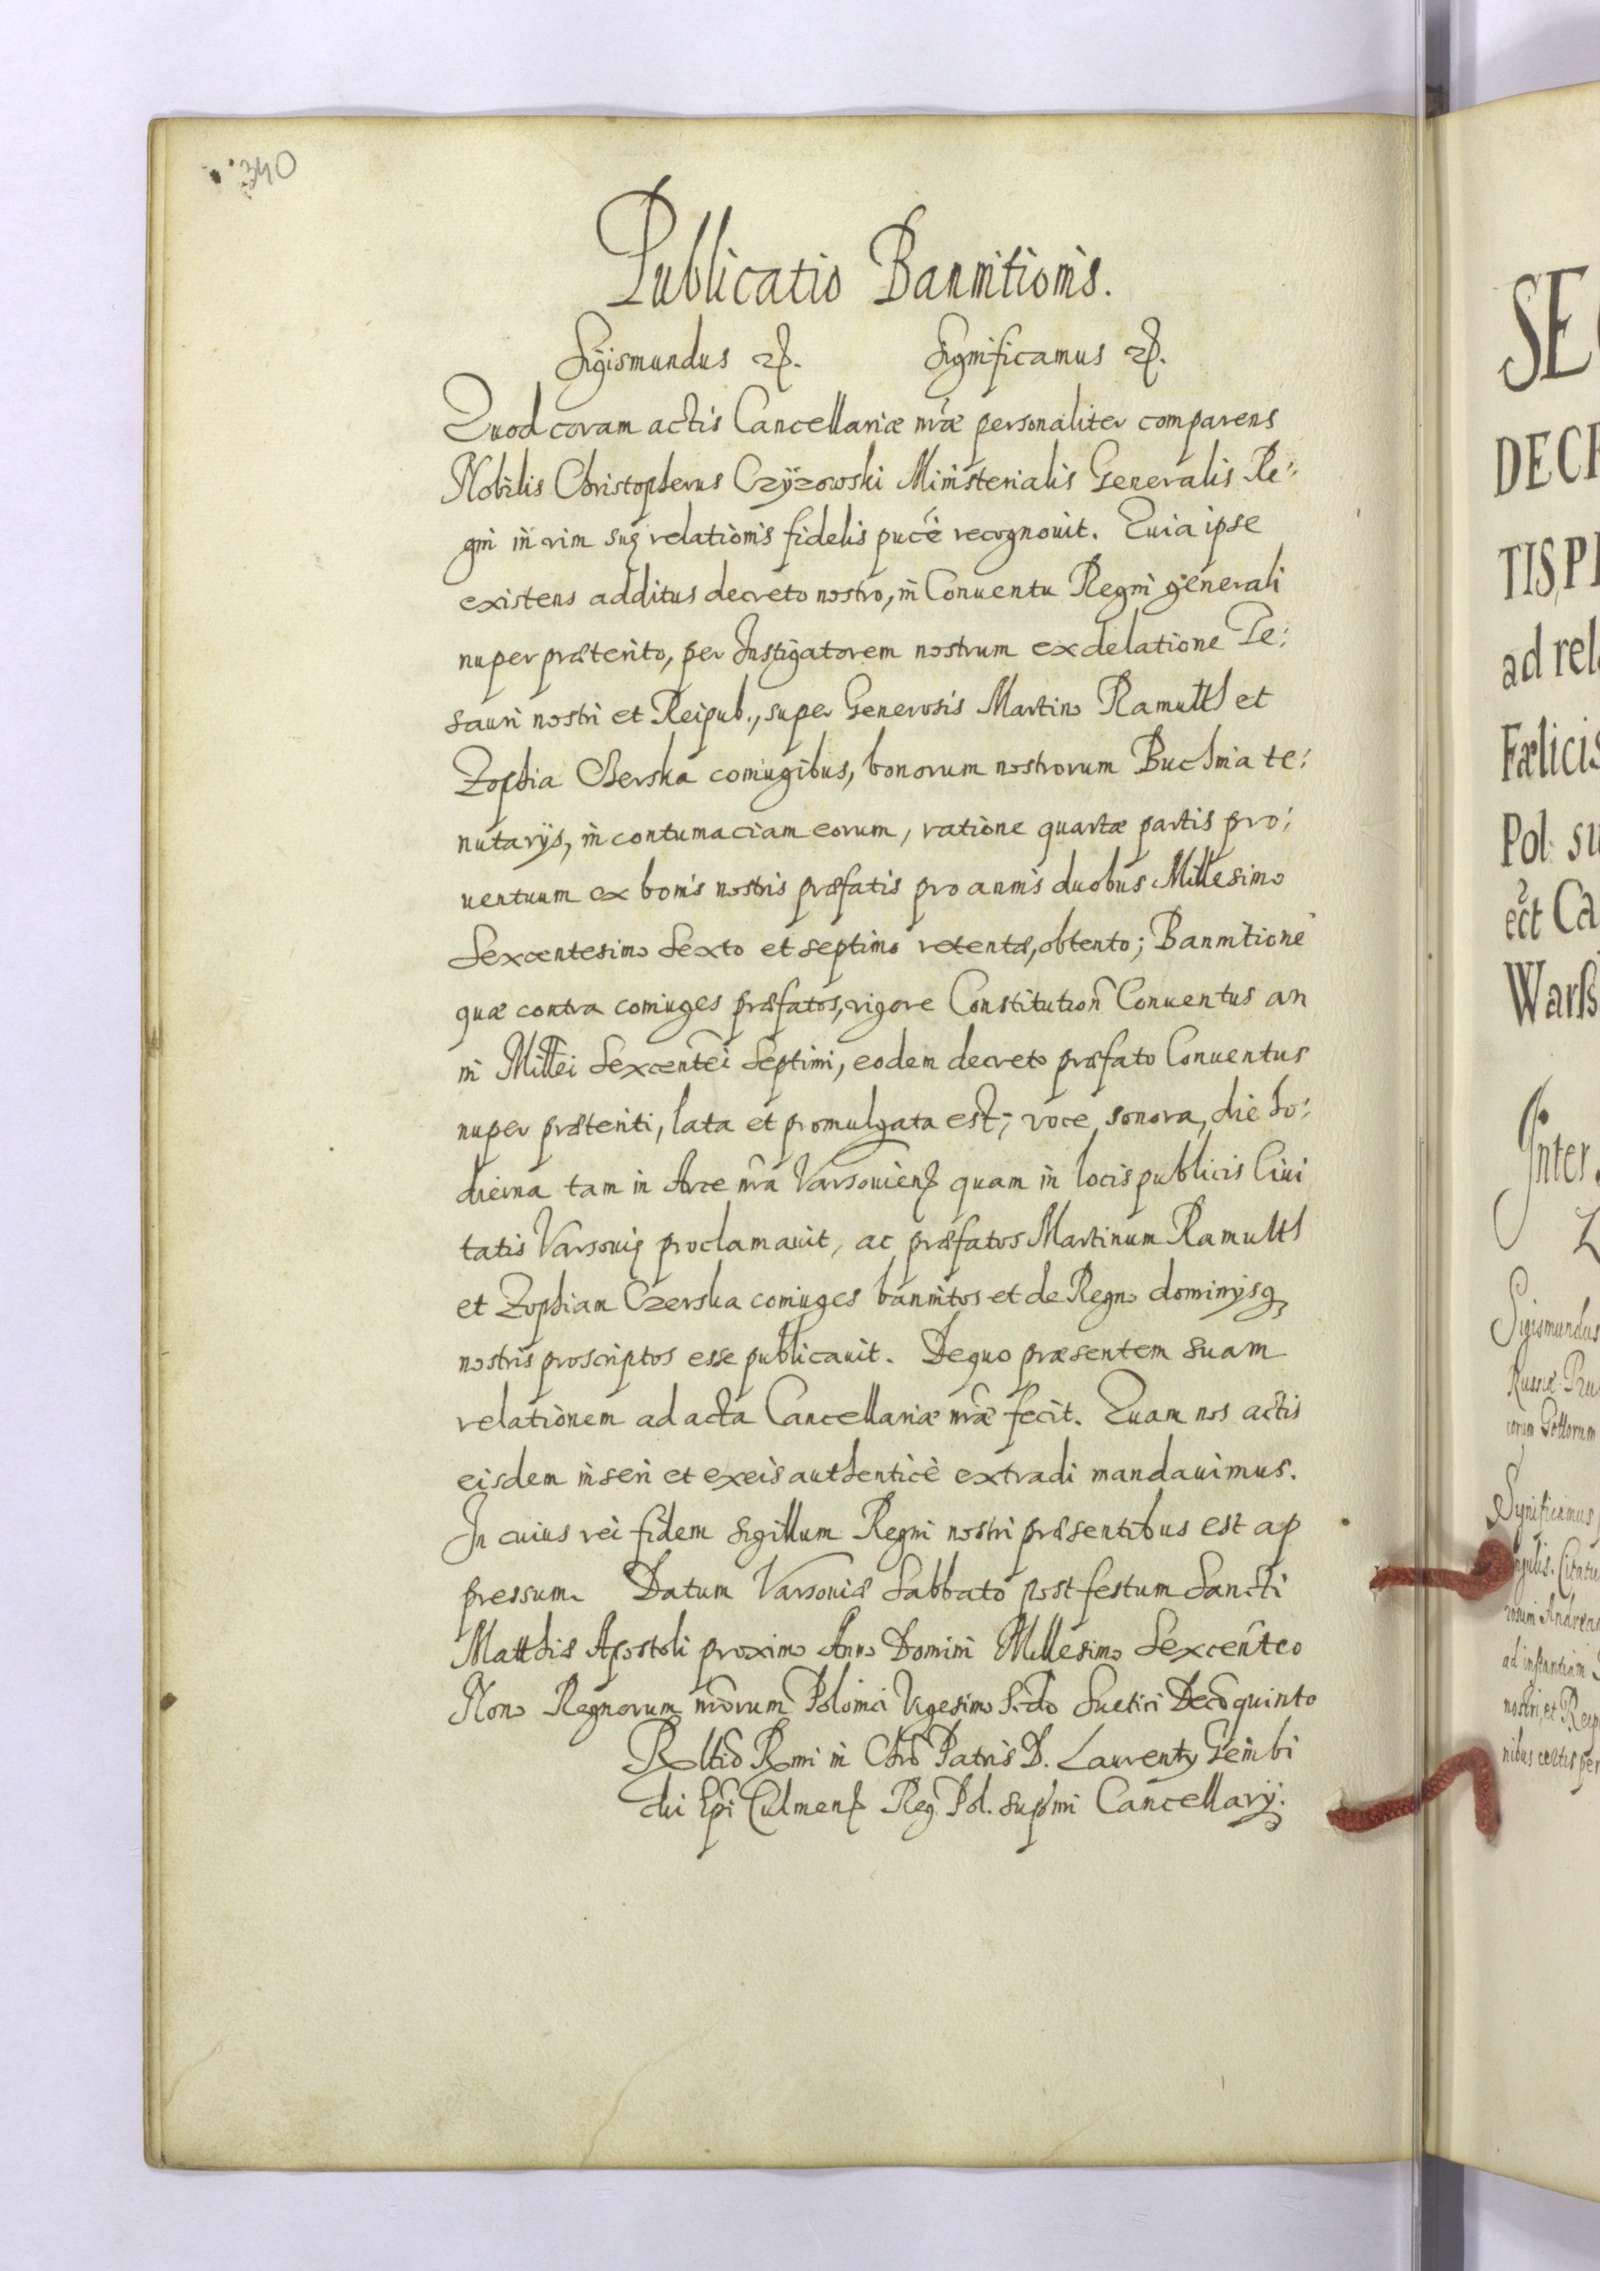 340
Publicatio Bannitionis.
Sigismundus etc. Significamus etc.
Quod coram actis Cancellariæ nr̃æ personaliter comparens
Nobilis Christopherus Czÿzowski Ministerialis Generalis Re:
gni in vim suę relationis fidelis puc̃e recognouit. Quia ipse
existens additus decreto nostro, in Conuentu Regni generali
nuper præterito, per Instigatorem nostrum ex delatione Te:
sauri nostri et Reipub., super Generosis Martino Ramulth et
Zophia Cherska coniugibus, bonorum nostrorum Buchnia te:
nutarÿs, in contumaciam eorum, ratione quartæ partis pro:
uentuum ex bonis nostris præfatis pro annis duobus Millesimo
Sexcentesimo Sexto et septimo retentæ, obtento; Bannitione
quæ contra coniuges præfatos, vigore Constitution̄ Conuentus an
ni Millei Sexcentei Septimi, eodem decreto præfato Conuentus
nuper præteriti, lata et promulgata est; voce sonora, die ho:
dierna tam in Arce nr̃a Varsouien̄ quam in locis publicis Ciui
tatis Varsouię proclamauit, ac præfatos Martinum Ramulth
et Zophiam Czerska coniuges bannitos et de Regno dominÿsq
nostris proscriptos esse publicauit. De quo præsentem suam
relationem ad acta Cancellariæ nr̃æ fecit. Quam nos actis
eisdem inseri et ex eis authenticè extradi mandauimus.
In cuius rei fidem sigillum Regni nostri præsentibus est ap
pressum. Datum Varsouiæ Sabbato post festum Sancti
Matthiæ Apostoli proximo Anno Domini Millesimo Sexcenteo
Nono Regnorum nr̃orum Polonici Vigesimo S.do Suetici Deco quinto
Rltio Rmi in Chro Patris D. Laurentÿ Gembi
chi Epi Culmen̄ Reg. Pol. supmi Cancellarÿ.
SE
DECR
TIS, P
ad rel
Fælicis
Pol: su
ect Ca
Wars
Inter
Sigismundus
Russiæ Pru
corum Gottorum
Significamus
Citatu
Andream
ad instantiam
nostri, et Reip
nibus certis per